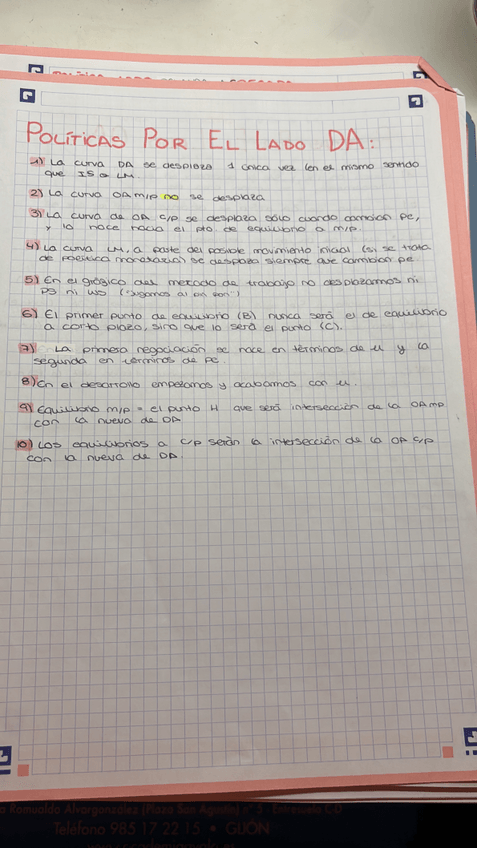 POLÍTICAS POR EL LADO DA:
1) La curva DA se desplaza 1 única vez (en el mismo sentido
que IS o LM.
2) La curva OA m/p no se desplaza
3) La curva de OA c/p se desplaza sólo cuando cambian Pe,
y lo hace hacia el pto de equilibrio a m/p.
4) La curva LM, a parte del posible movimiento inicial (si se trata
de política monetaria) se desplaza siempre que cambian pe
5) En el gráfico del mercado de trabajo no desplazamos ni
PS ni WS
6) El primer punto de equilibrio (B) nunca será el de equilibrio
a corto plazo, sino que lo será el punto (C).
7) La primera negociación se hace en términos de u y la
segunda en términos de Pe.
8) En el desarrollo empezamos y acabamos con u.
9) Equilibrio m/p = el punto H que será intersección de la OA mp
con la nueva de DA
10) Los equilibrios a c/p serán la intersección de la OA c/p
con la nueva de DA.
Romualdo Alvargonzález (Plaza San Agustín) nº 5 - Entresuelo C.D
Teléfono 985 17 22 15 • GIJÓN